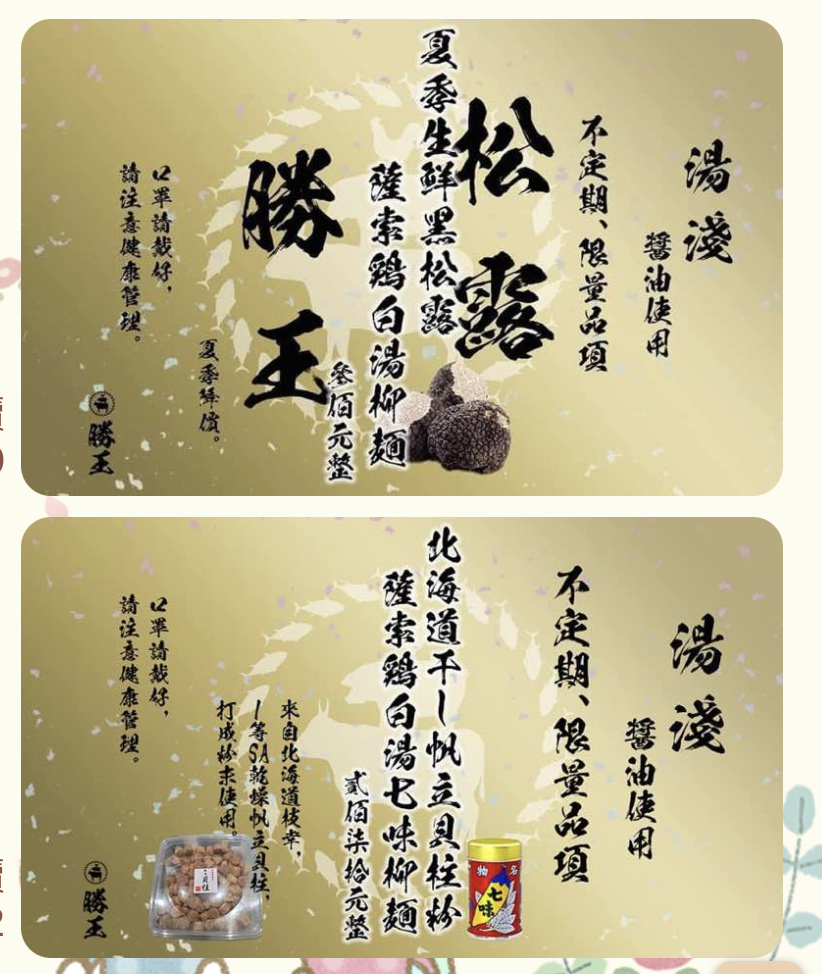 湯淺
醬油使用
不定期、限量品項
松露
夏季生鮮黑松露
薩索鶏白湯柳麺
參佰元整
勝王
夏季降價。
口罩請戴好,
請注意健康管理。
勝王
湯淺
醬油使用
不定期、限量品項
北海道干し帆立貝柱粉
薩索鶏白湯七味柳麺
名物
七味
貳佰柒拾元整
來自北海道枝幸,
1等SA乾燥帆立貝柱,
打成粉末使用。
口罩請戴好,
請注意健康管理。
勝王